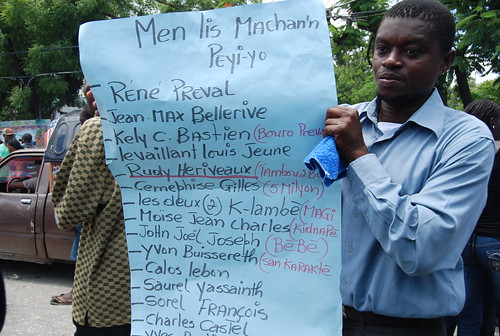 Men lis Machan'n
Peyi-yo
- Réné Preval
- Jean-Max Bellerive
- Kely C. Bastien (Bouro Prev
- levaillant louis Jeune
- Rudy Heriveaux (Tambou 2 B
- Cemephise Gilles (5 Milyon)
- les deux (2) K-lambe (MAGI
- Moise Jean Charles (Kidnapè
- John Joël Joseph (Bè Bè)
- Yvon Buissereth (san karaktè
- Calos lebon
- Saurel Yassainth
- Sorel François
- Charles Castel